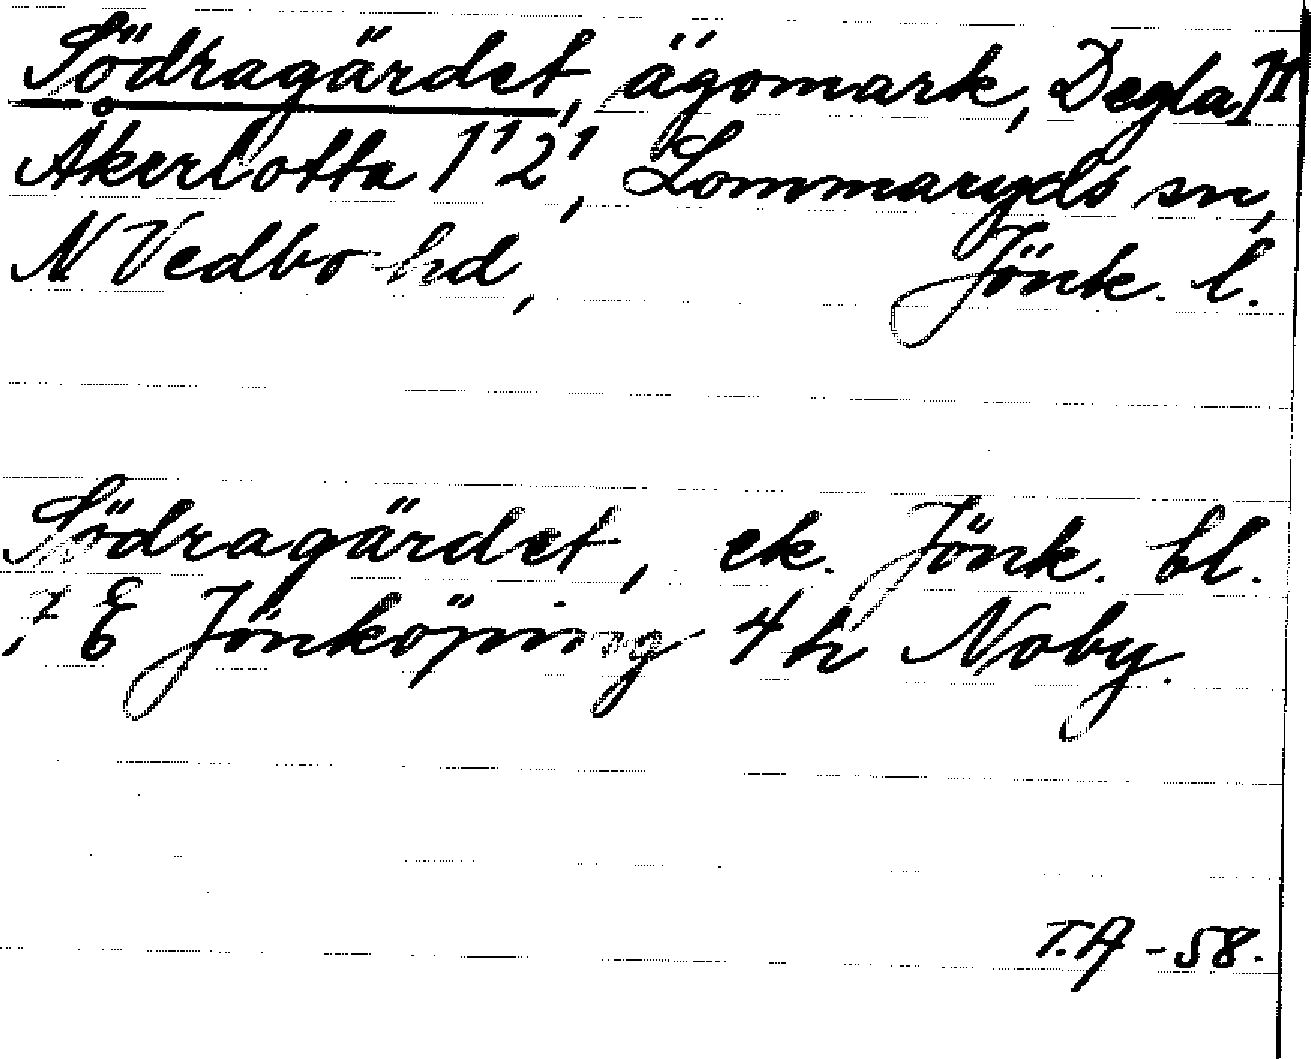 Södragärdet, ägomark, Degla 1¹
Åkerlotta 1¹ 2¹, Lommaryds sn,
N Vedbo hd, Jönk. l.
Södragärdet, ek. Jönk. bl.
7 E Jönköping 4 h Noby.
T.A -58.